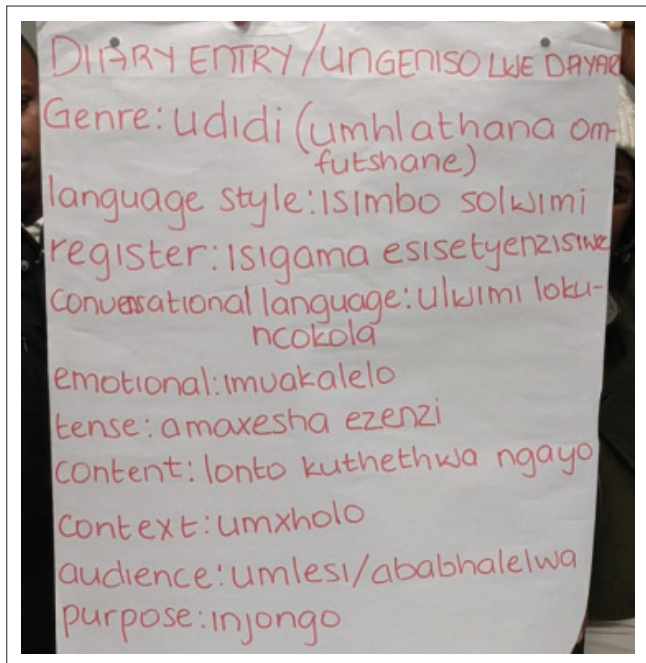 DIARY ENTRY/UNGENISO LWE DAYAR
Genre: udidi (umhlathana om-
futshane)
language style: isimbo solwimi
register: isigama esisetyenzisiwe
conversational language: ulwimi loku-
ncokola
emotional: imvakalelo
tense: amaxesha ezenzi
content: lonto kuthethwa ngayo
context: umxholo
audience: umlesi/ababhalelwa
purpose: injongo